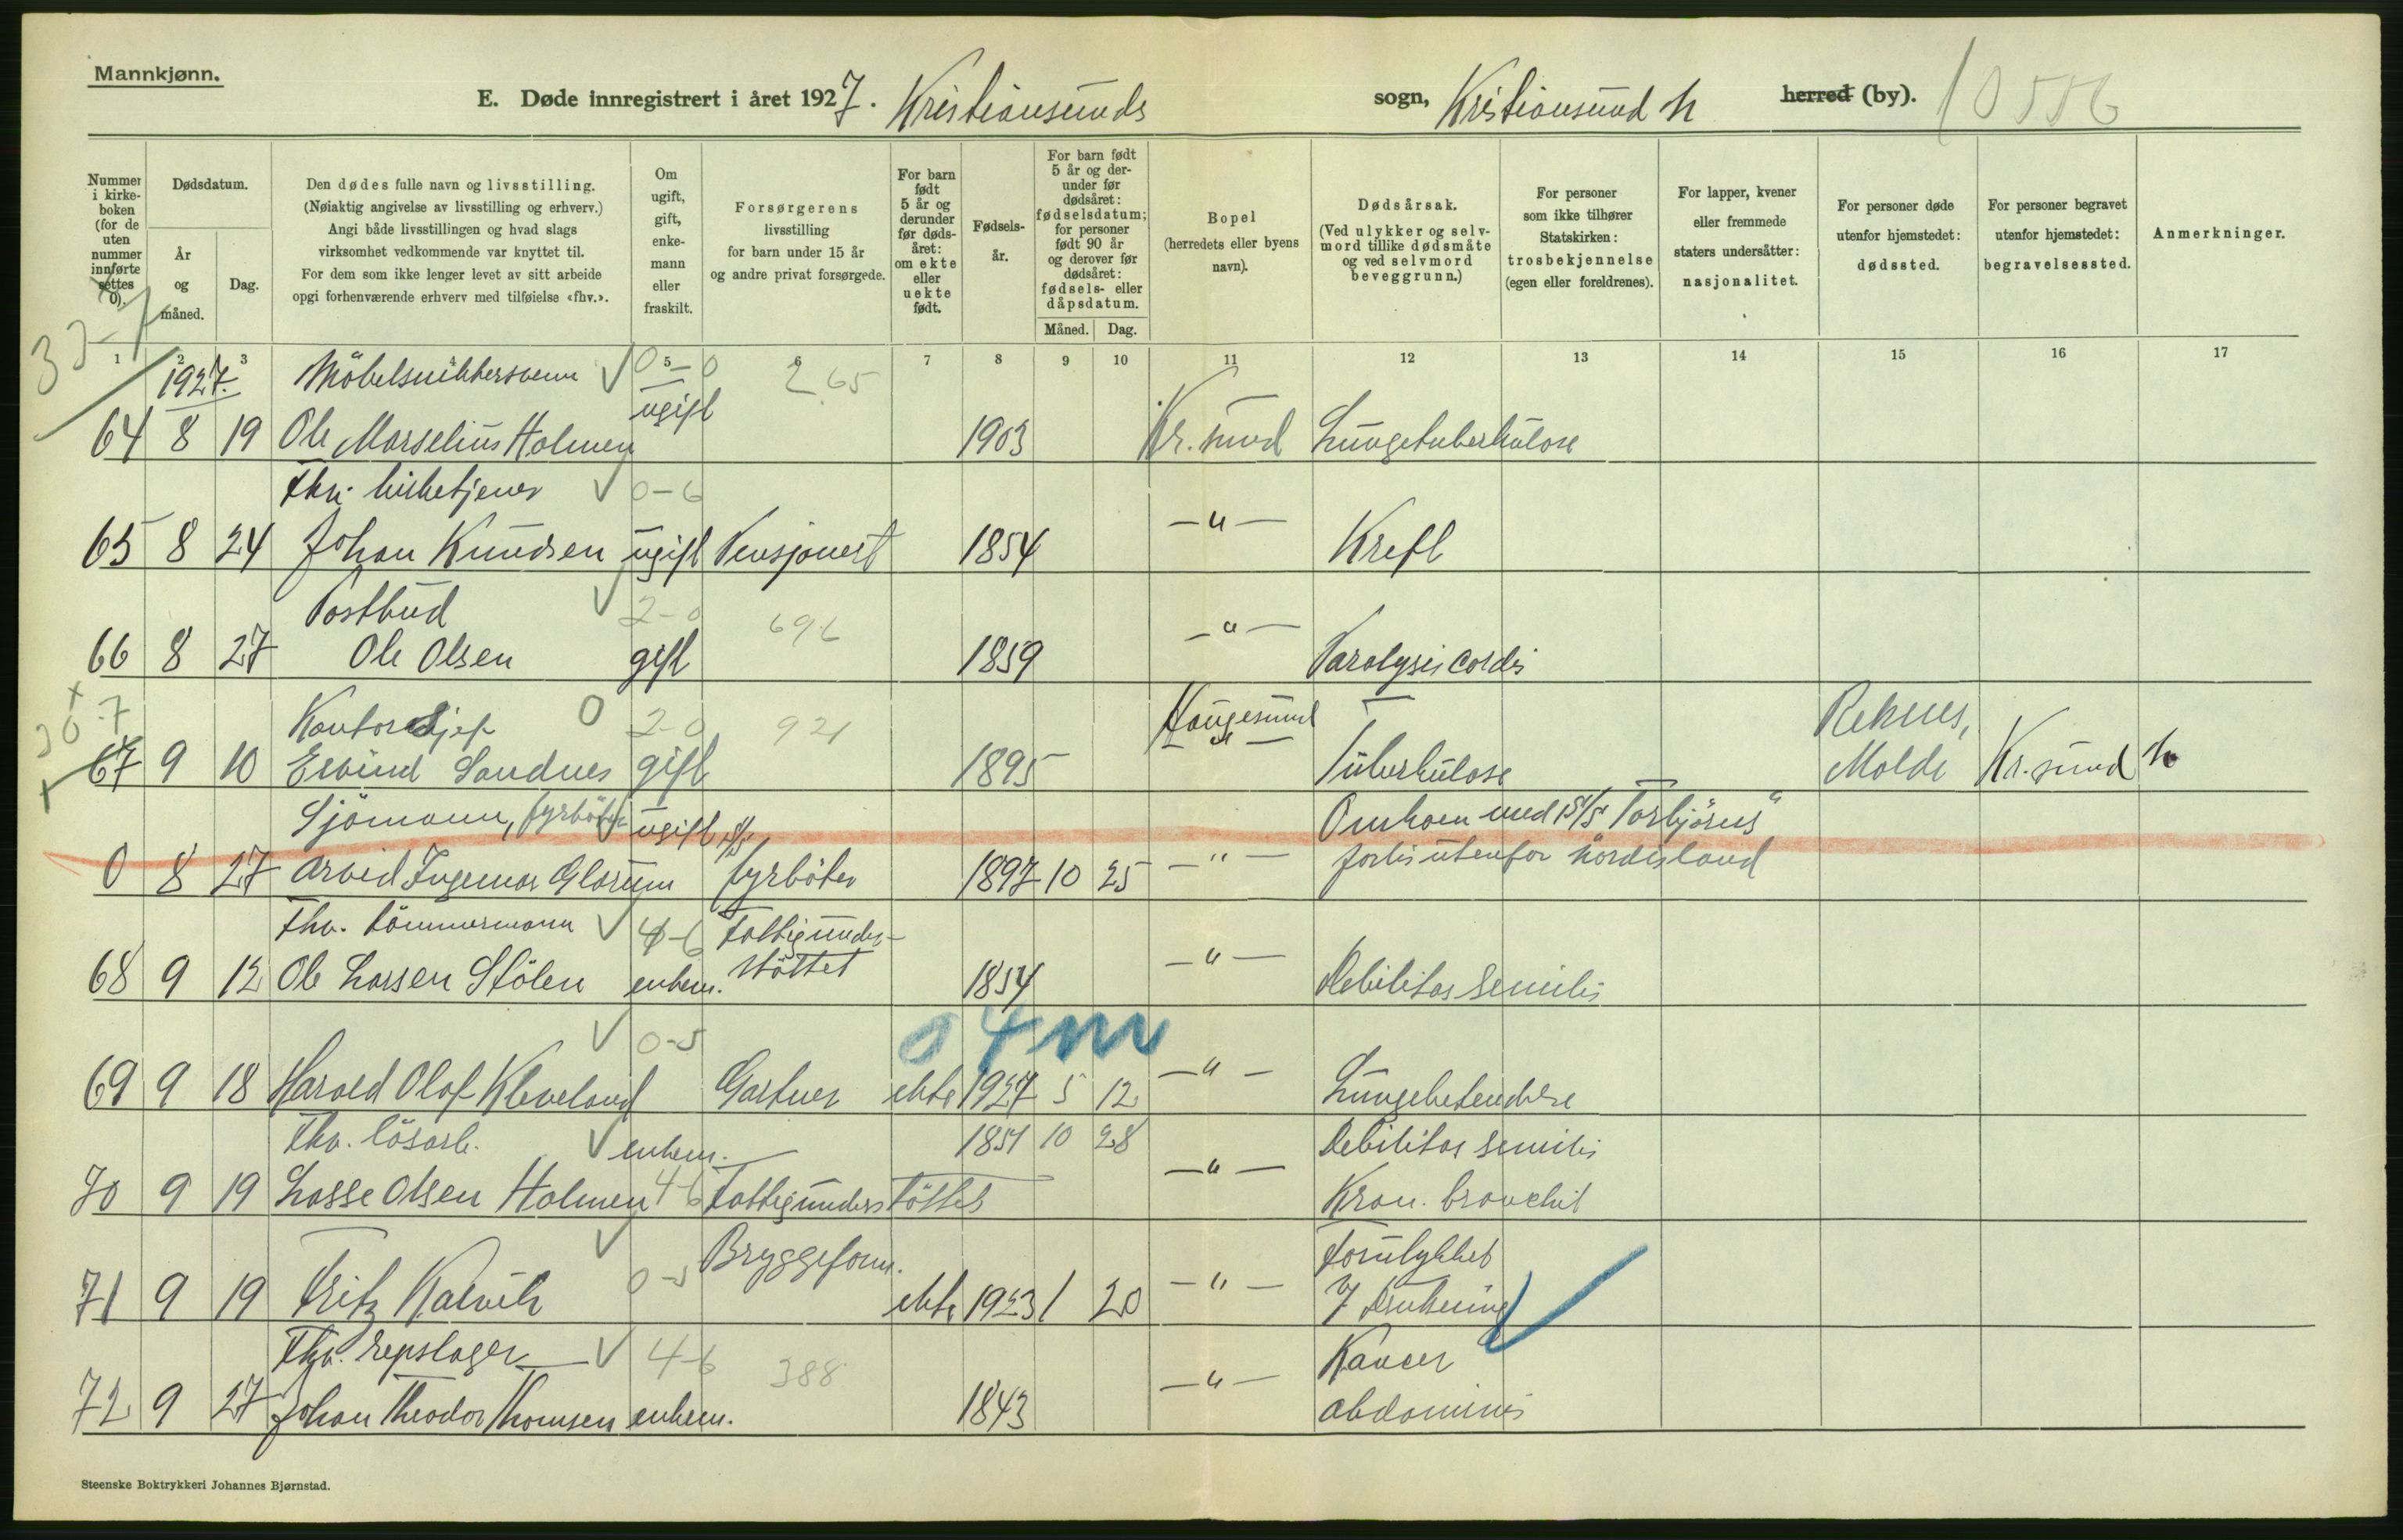 Mannkjønn.
E. Døde innregistrert i året 1927. Kristiansunds sogn, Kristiansund N herred (by). 10556
Nummer i kirkeboken (for de uten nummer innførte settes 0).
Dødsdatum.
År og måned.
Dag.
Den dødes fulle navn og livsstilling.
(Nøiaktig angivelse av livsstilling og erhverv.)
Angi både livsstillingen og hvad slags
virksomhet vedkommende var knyttet til.
For dem som ikke lenger levet av sitt arbeide
opgi forhenværende erhverv med tilføielse «fhv.».
Om ugift, gift, enkemann eller fraskilt.
Forsørgerens livsstilling for barn under 15 år og andre privat forsørgede.
For barn født 5 år og derunder før dødsåret: om ekte eller uekte født.
Fødselsår.
For barn født 5 år og derunder før dødsåret: fødselsdatum; for personer født 90 år og derover før dødsåret: fødsels- eller dåpsdatum.
Måned. Dag.
Bopel (herredets eller byens navn).
Dødsårsak. (Ved ulykker og selvmord tillike dødsmåte og ved selvmord beveggrunn.)
For personer som ikke tilhører Statskirken: trosbekjennelse (egen eller foreldrenes).
For lapper, kvener eller fremmede staters undersåtter: nasjonalitet.
For personer døde utenfor hjemstedet: dødssted.
For personer begravet utenfor hjemstedet: begravelsessted.
Anmerkninger.
1 2 3 4 5 6 7 8 9 10 11 12 13 14 15 16 17
1927. Möbelsnikkersvenn 0-0 265
64 8 19 Ole Marselius Holmen ugift 1903 Kr.sund Lungetuberkulose
Fhv. kirketjener 0-6
65 8 24 Johan Knudsen ugift Pensjonert 1854 -"- Kreft
Postbud 2-0 696
66 8 27 Ole Olsen gift 1859 -"- Paralysis cordis
Kontorsjef 0 2-0 921 Haugesund Reknes,
67 9 10 Eivind Sandnes gift 1895 -"- Tuberkulose Molde Kr.sund N
Sjömann, fyrböter ugift Omkom med S/S "Torbjörns"
0 8 27 Arvid Ingemar Glærum fyrböter 1897 10 25 -"- forlis utenfor Nordisland
Fhv. tömmermann 4-6 Fattigunder-
68 9 12 Ole Larsen Stölen enkem. støttet 1854 -"- Debilitas senilis
0-5 0 4 m
69 9 18 Harald Olaf Kleveland Gartner ekte 1927 5 12 -"- Lungebetendelse
Fhv. lösarb. enkem. 1851 10 28 Debilitas senilis
70 9 19 Lasse Olsen Holmen 4-6 Fattigunderstöttet -"- Kron. bronchit
Bryggeform. Forulykket
71 9 19 Fritz Kalvik 0-5 ekte 1923 1 20 -"- Drukning
Fhv. repslager 4-6 388 Kancer
72 9 27 Johan Theodor Thomsen enkem. 1843 -"- abdominis
Steenske Boktrykkeri Johannes Bjørnstad.